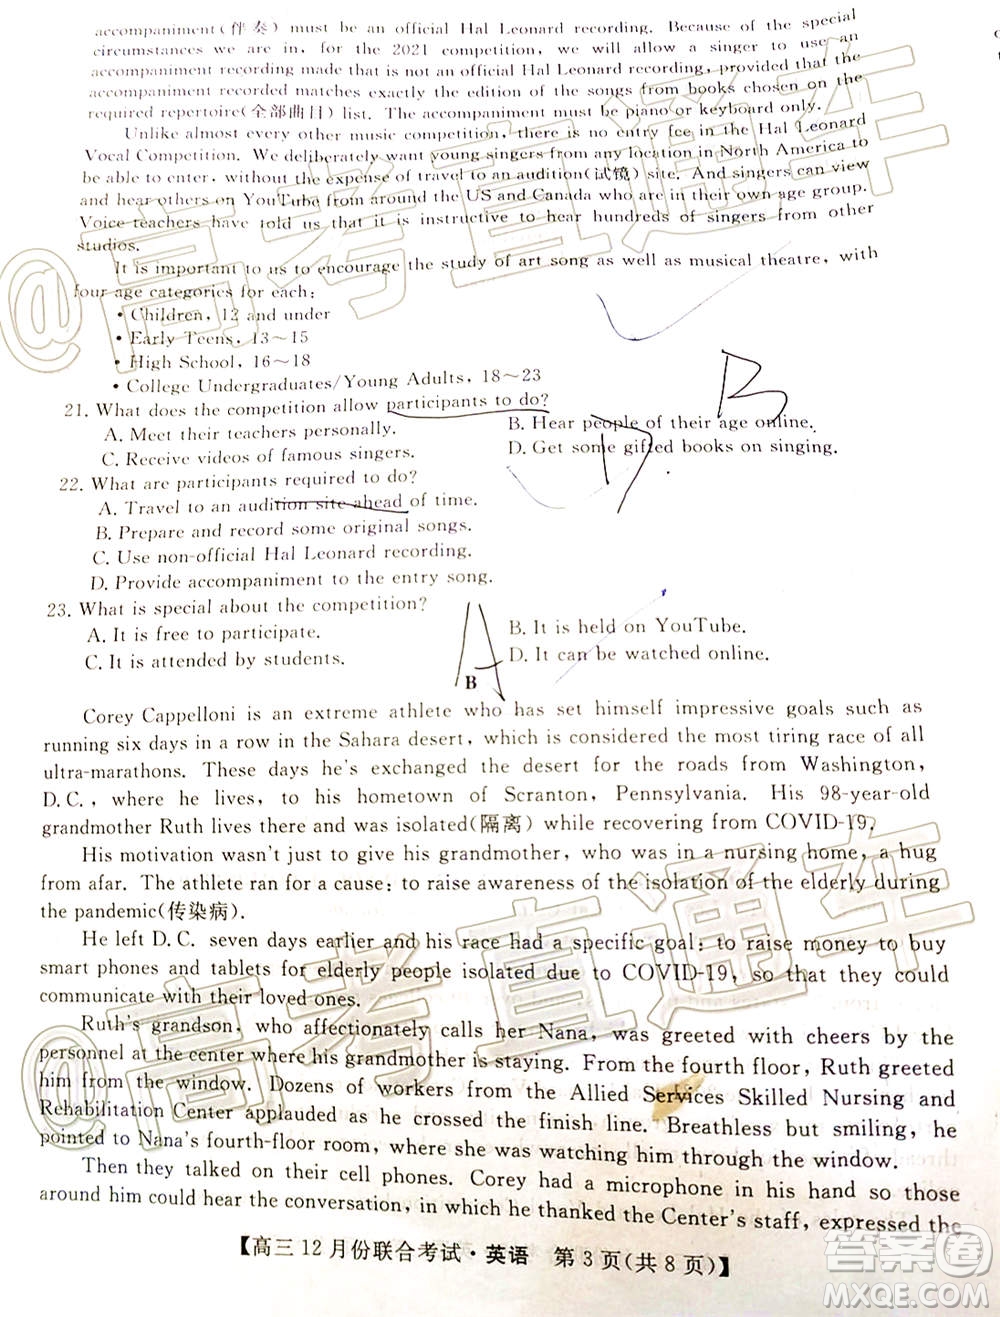 accompaniment(伴奏) must be an official Hal Leonard recording. Because of the special
circumstances we are in, for the 2021 competition, we will allow a singer to use an
accompaniment recording made that is not an official Hal Leonard recording, provided that the
accompaniment recorded matches exactly the edition of the songs from books chosen on the
required repertoire(全部曲目) list. The accompaniment must be piano or keyboard only.
Unlike almost every other music competition, there is no entry fee in the Hal Leonard
Vocal Competition. We deliberately want young singers from any location in North America to
be able to enter, without the expense of travel to an audition(试镜) site. And singers can view
and hear others on YouTube from around the US and Canada who are in their own age group.
Voice teachers have told us that it is instructive to hear hundreds of singers from other
studios.
It is important to us to encourage the study of art song as well as musical theatre, with
four age categories for each:
• Children, 12 and under
• Early Teens, 13~15
• High School, 16~18
• College Undergraduates/Young Adults, 18~23
21. What does the competition allow participants to do?
A. Meet their teachers personally. B. Hear people of their age online.
C. Receive videos of famous singers. D. Get some gifted books on singing.
B
D
22. What are participants required to do?
A. Travel to an audition site ahead of time.
B. Prepare and record some original songs.
C. Use non-official Hal Leonard recording.
D. Provide accompaniment to the entry song.
23. What is special about the competition?
A. It is free to participate. B. It is held on YouTube.
C. It is attended by students. D. It can be watched online.
A
B
Corey Cappelloni is an extreme athlete who has set himself impressive goals such as
running six days in a row in the Sahara desert, which is considered the most tiring race of all
ultra-marathons. These days he's exchanged the desert for the roads from Washington,
D.C., where he lives, to his hometown of Scranton, Pennsylvania. His 98-year-old
grandmother Ruth lives there and was isolated(隔离) while recovering from COVID-19.
His motivation wasn't just to give his grandmother, who was in a nursing home, a hug
from afar. The athlete ran for a cause: to raise awareness of the isolation of the elderly during
the pandemic(传染病).
He left D.C. seven days earlier and his race had a specific goal: to raise money to buy
smart phones and tablets for elderly people isolated due to COVID-19, so that they could
communicate with their loved ones.
Ruth's grandson, who affectionately calls her Nana, was greeted with cheers by the
personnel at the center where his grandmother is staying. From the fourth floor, Ruth greeted
him from the window. Dozens of workers from the Allied Services Skilled Nursing and
Rehabilitation Center applauded as he crossed the finish line. Breathless but smiling, he
pointed to Nana's fourth-floor room, where she was watching him through the window.
Then they talked on their cell phones. Corey had a microphone in his hand so those
around him could hear the conversation, in which he thanked the Center's staff, expressed the
【高三12月份联合考试·英语 第3页(共8页)】
@高考直通车
@高考直通车
答案圈
MXQE.COM